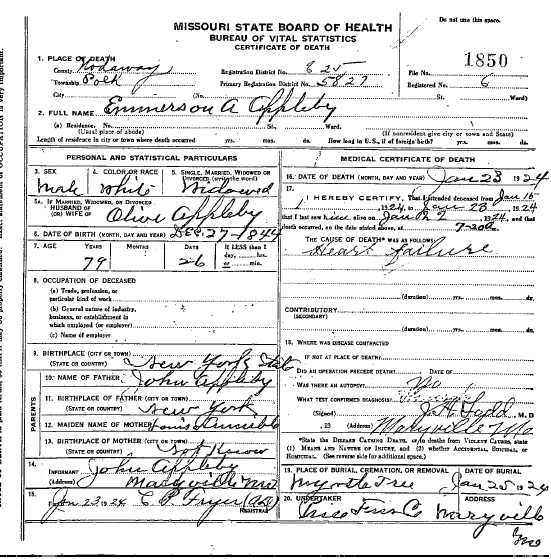 Do not use this space.
MISSOURI STATE BOARD OF HEALTH
BUREAU OF VITAL STATISTICS
CERTIFICATE OF DEATH
1. PLACE OF DEATH
County Nodaway Registration District No. 625 File No. 1850
Township Polk Primary Registration District No. 5827 Registered No. 6
City (No. St. Ward)
2. FULL NAME Emmerson A Appleby
(a) Residence, No. St., Ward.
(Usual place of abode) (If nonresident give city or town and State)
Length of residence in city or town where death occurred yrs. mos. ds. How long in U.S., if of foreign birth? yrs. mos. ds.
PERSONAL AND STATISTICAL PARTICULARS
3. SEX Male
4. COLOR OR RACE White
5. SINGLE, MARRIED, WIDOWED OR DIVORCED (write the word) Widowed
5a. IF MARRIED, WIDOWED, OR DIVORCED HUSBAND OF (OR) WIFE OF Olive Appleby
6. DATE OF BIRTH (MONTH, DAY AND YEAR) Dec. 27-1844
7. AGE YEARS MONTHS DAYS If LESS than 1 day, hrs. or min.
79 26
8. OCCUPATION OF DECEASED
(a) Trade, profession, or particular kind of work
(b) General nature of industry, business, or establishment in which employed (or employer)
(c) Name of employer
9. BIRTHPLACE (CITY OR TOWN)
(STATE OR COUNTRY) New York State
PARENTS
10. NAME OF FATHER John Appleby
11. BIRTHPLACE OF FATHER (CITY OR TOWN)
(STATE OR COUNTRY) New York
12. MAIDEN NAME OF MOTHER
13. BIRTHPLACE OF MOTHER (CITY OR TOWN)
(STATE OR COUNTRY) Not Known
14. INFORMANT John Appleby
(Address) Maryville Mo
15. Jan 23 1924 C P Fryer
REGISTRAR
MEDICAL CERTIFICATE OF DEATH
16. DATE OF DEATH (MONTH, DAY AND YEAR) Jan 23 1924
17.
I HEREBY CERTIFY, That I attended deceased from Jan 15
1924 to Jan 23, 1924
that I last saw him alive on Jan 1924, and that
death occurred, on the date stated above, at
THE CAUSE OF DEATH* WAS AS FOLLOWS:
Heart failure
(duration) yrs. mos. ds.
CONTRIBUTORY
(SECONDARY)
(duration) yrs. mos. ds.
18. WHERE WAS DISEASE CONTRACTED
IF NOT AT PLACE OF DEATH?
DID AN OPERATION PRECEDE DEATH? DATE OF
WAS THERE AN AUTOPSY? No
WHAT TEST CONFIRMED DIAGNOSIS?
(Signed) M. D.
, 23 (Address) Maryville Mo
*State the DISEASE CAUSING DEATH, or in deaths from VIOLENT CAUSES, state
(1) MEANS AND NATURE OF INJURY, and (2) whether ACCIDENTAL, SUICIDAL, or
HOMICIDAL. (See reverse side for additional space.)
19. PLACE OF BURIAL, CREMATION, OR REMOVAL DATE OF BURIAL
Myrtle Tree Jan 25 1924
20. UNDERTAKER ADDRESS
Maryville
Mo